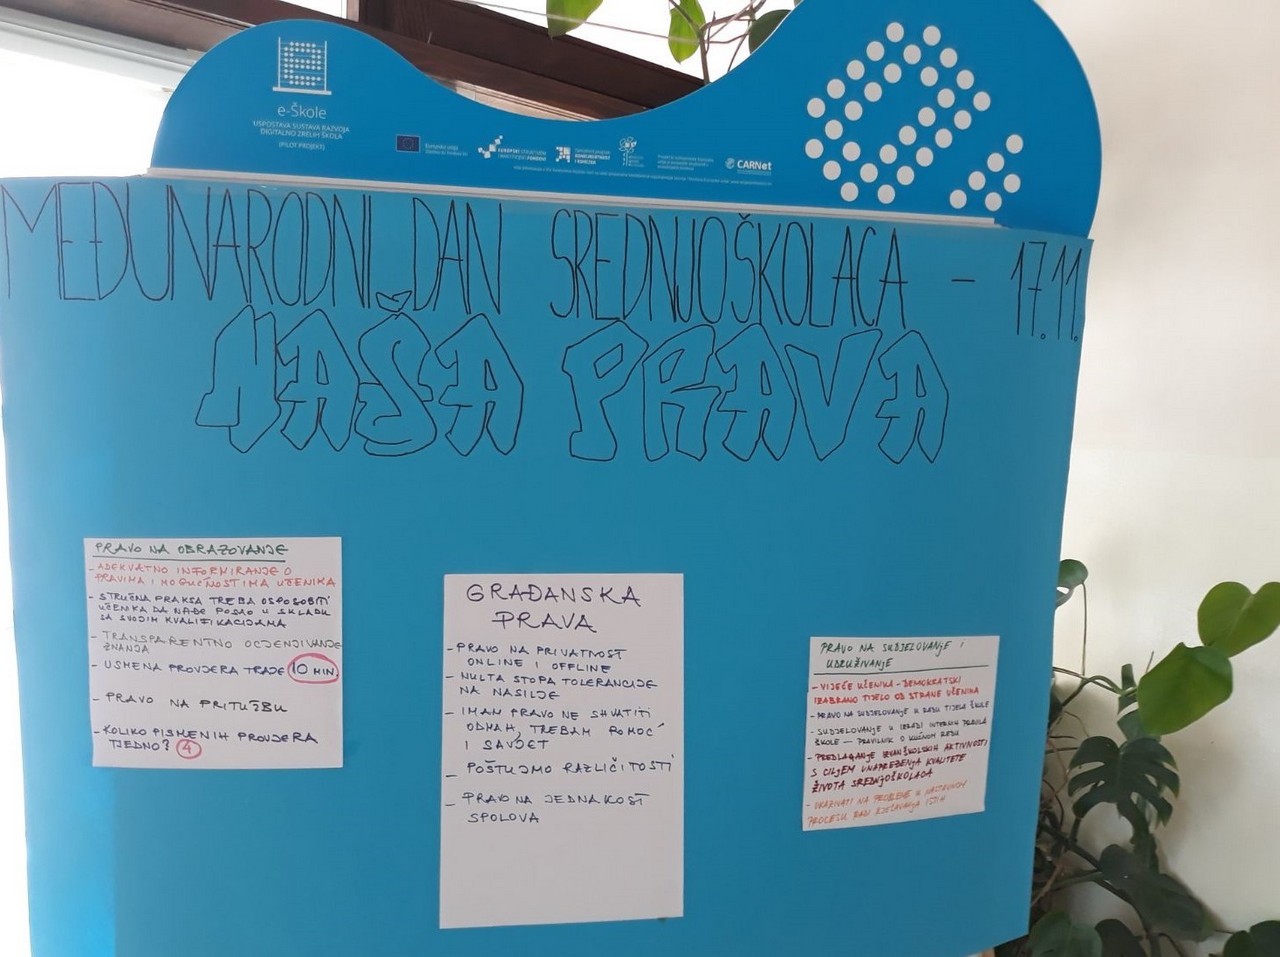 e-Škole
USPOSTAVA SUSTAVA RAZVOJA
DIGITALNO ZRELIH ŠKOLA
(PILOT PROJEKT)
Europska unija
EUROPSKI STRUKTURNI
I INVESTICIJSKI FONDOVI
Operativni program
KONKURENTNOST
I KOHEZIJA
CARNet
MEĐUNARODNI DAN SREDNJOŠKOLACA - 17.11.
NAŠA PRAVA
PRAVO NA OBRAZOVANJE
- ADEKVATNO INFORMIRANJE O
PRAVIMA I MOGUĆNOSTIMA UČENIKA
- STRUČNA PRAKSA TREBA OSPOSOBITI
UČENIKA DA NAĐE POSAO U SKLADU
SA SVOJIM KVALIFIKACIJAMA
- TRANSPARENTNO OCJENJIVANJE
ZNANJA
- USMENA PROVJERA TRAJE 10 MIN.
- PRAVO NA PRITUŽBU
- KOLIKO PISMENIH PROVJERA
TJEDNO? 4
GRAĐANSKA
PRAVA
- PRAVO NA PRIVATNOST
ONLINE I OFFLINE
- NULTA STOPA TOLERANCIJE
NA NASILJE
- IMAM PRAVO NE SHVATITI
ODMAH, TREBAM POMOĆ
I SAVJET
- POŠTUJMO RAZLIČITOSTI
- PRAVO NA JEDNAKOST
SPOLOVA
PRAVO NA SUDJELOVANJE I
UDRUŽIVANJE
- VIJEĆE UČENIKA - DEMOKRATSKI
IZABRANO TIJELO OD STRANE UČENIKA
- PRAVO NA SUDJELOVANJE U RADU TIJELA ŠKOLE
- SUDJELOVANJE U IZRADI INTERNIH PRAVILA
ŠKOLE — PRAVILNIK O KUĆNOM REDU
- PREDLAGANJE IZVANŠKOLSKIH AKTIVNOSTI
S CILJEM UNAPREĐENJA KVALITETE
ŽIVOTA SREDNJOŠKOLACA
- UKAZIVATI NA PROBLEME U NASTAVNOM
PROCESU RADI RJEŠAVANJA ISTIH